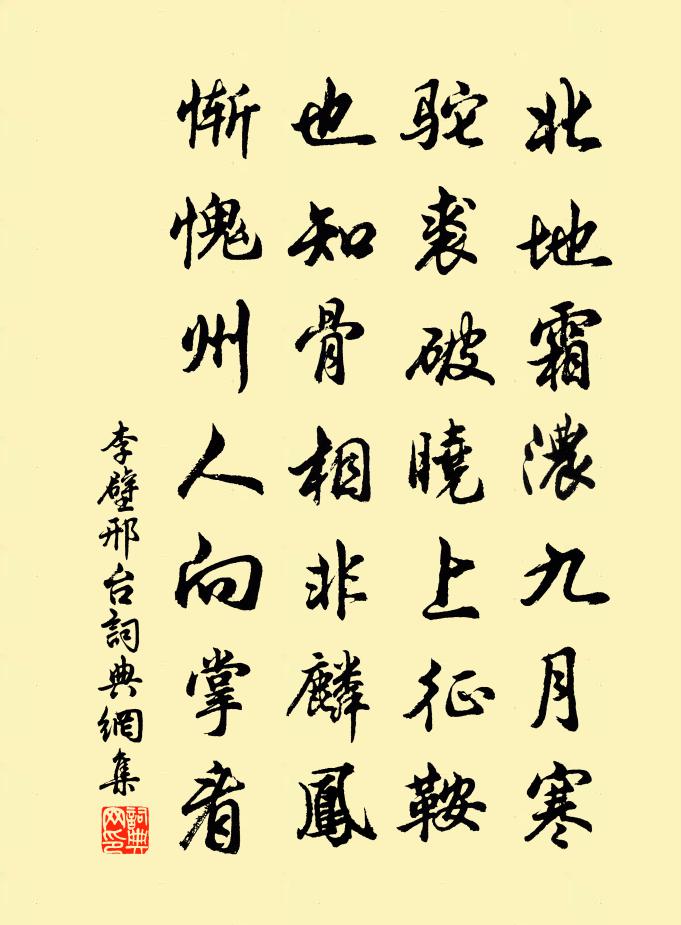 北地霜濃九月寒
駝裘破曉上征鞍
也知骨相非麟鳳
慚愧州人向掌看
李壁邢台詞典網集
詞典网印